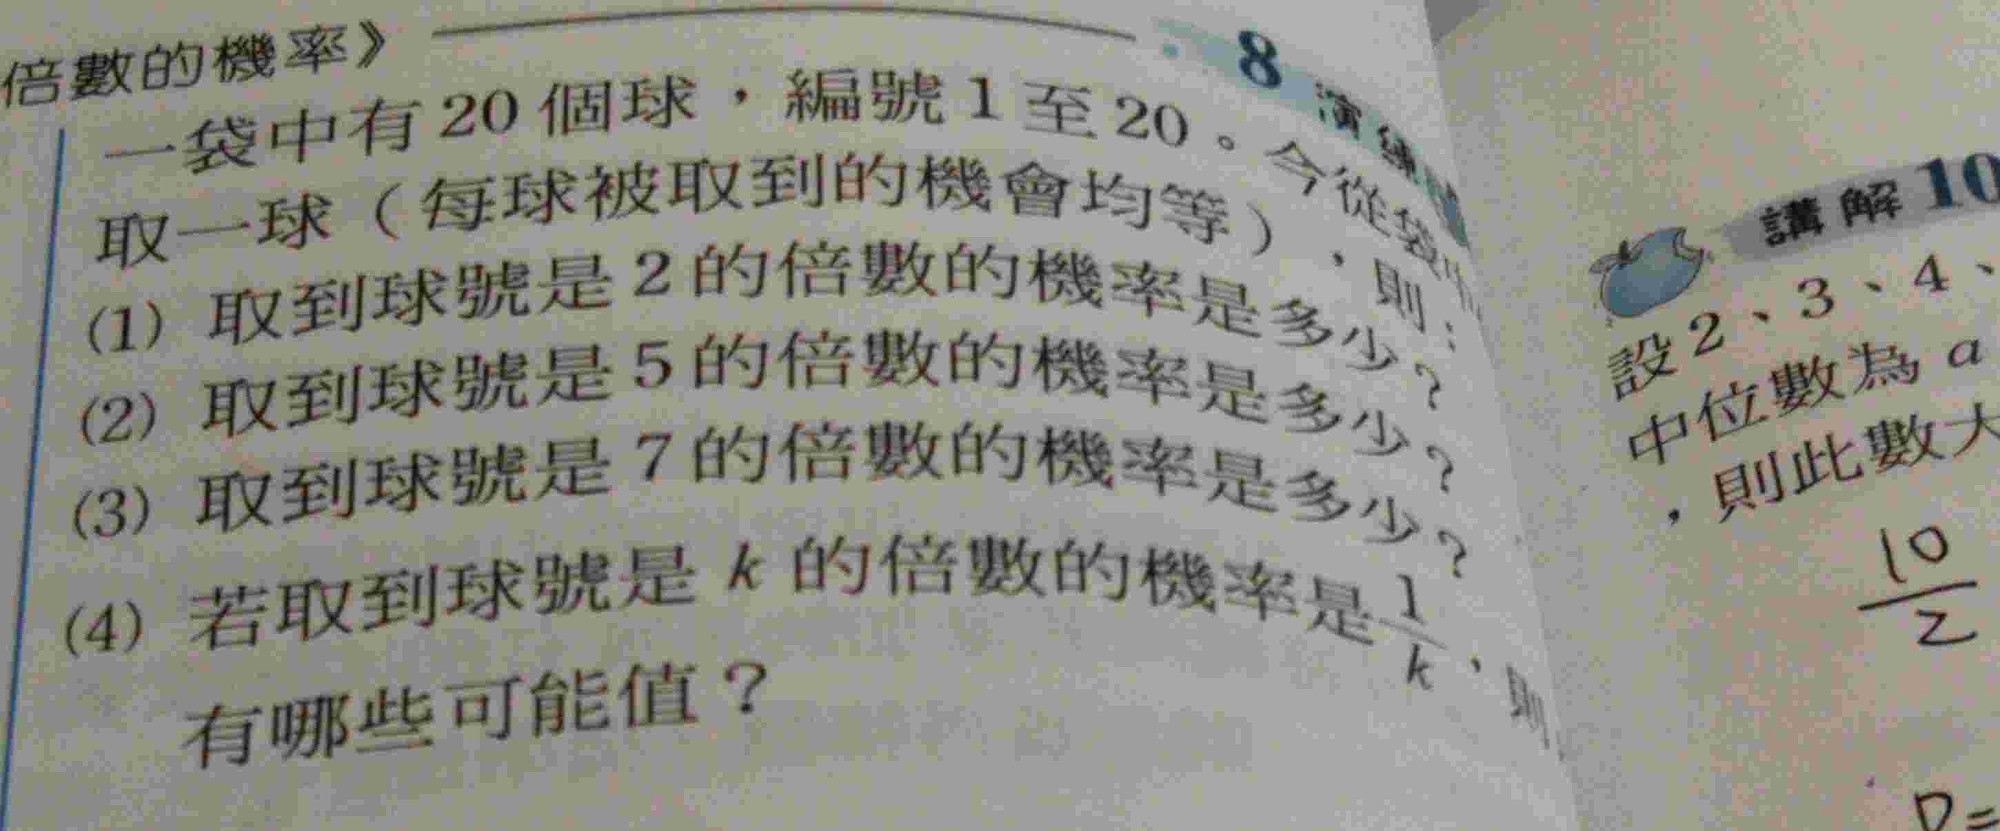 倍數的機率》
8 演練
一袋中有 20 個球，編號 1 至 20。今從袋中
取一球（每球被取到的機會均等），則：
(1) 取到球號是 2 的倍數的機率是多少？
(2) 取到球號是 5 的倍數的機率是多少？
(3) 取到球號是 7 的倍數的機率是多少？
(4) 若取到球號是 k 的倍數的機率是 1/k，則
有哪些可能值？
講解 10
設 2、3、4、
中位數為 a
，則此數大
10/2
D=